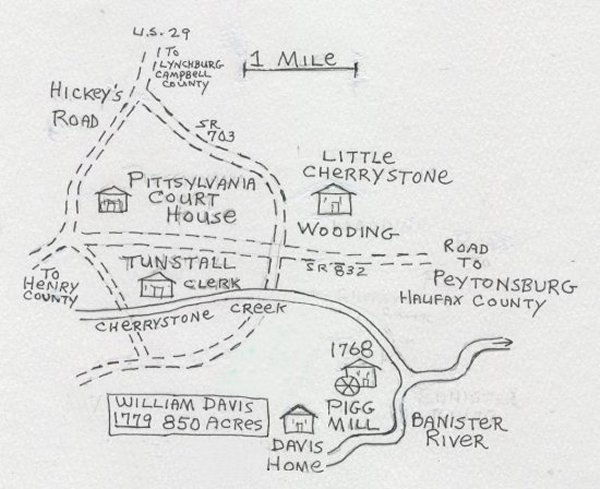 U.S. 29
TO
LYNCHBURG
CAMPBELL
COUNTY
1 MILE
HICKEY'S
ROAD
SR
703
LITTLE
CHERRYSTONE
PITTSYLVANIA
COURT
HOUSE
WOODING
ROAD
TO
PEYTONSBURG
HALIFAX COUNTY
SR 832
TO
HENRY
COUNTY
TUNSTALL
CLERK
CHERRYSTONE CREEK
1768
PIGG
MILL
WILLIAM DAVIS
1779 850 ACRES
DAVIS
HOME
BANISTER
RIVER